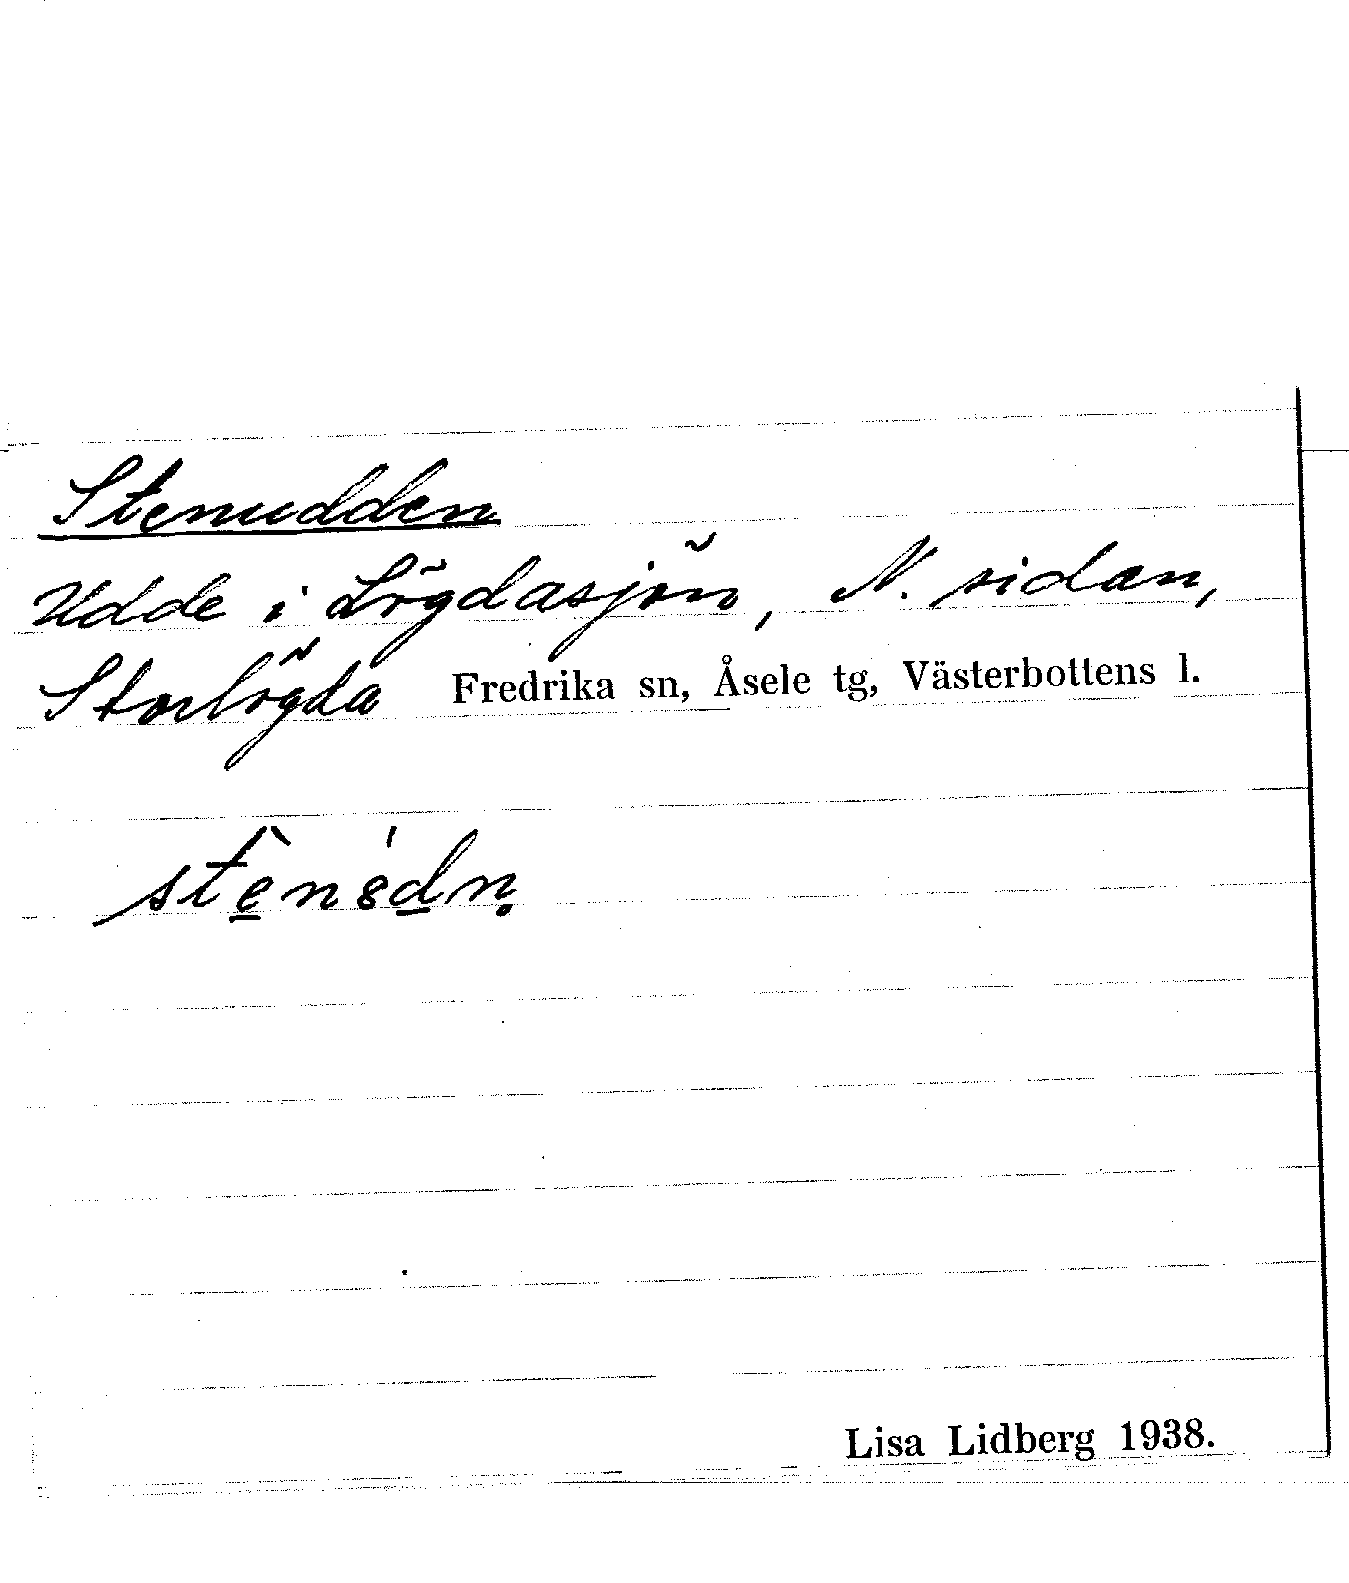 Stenudden
Udde i Lögdasjön, N. sidan,
Storlögda Fredrika sn, Åsele tg, Västerbottens l.
Lisa Lidberg 1938.